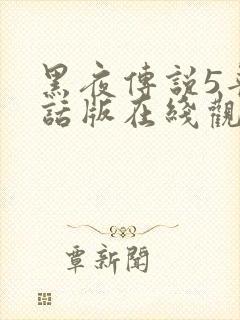 黑夜傳説5
話版在綫觀
覃新聞